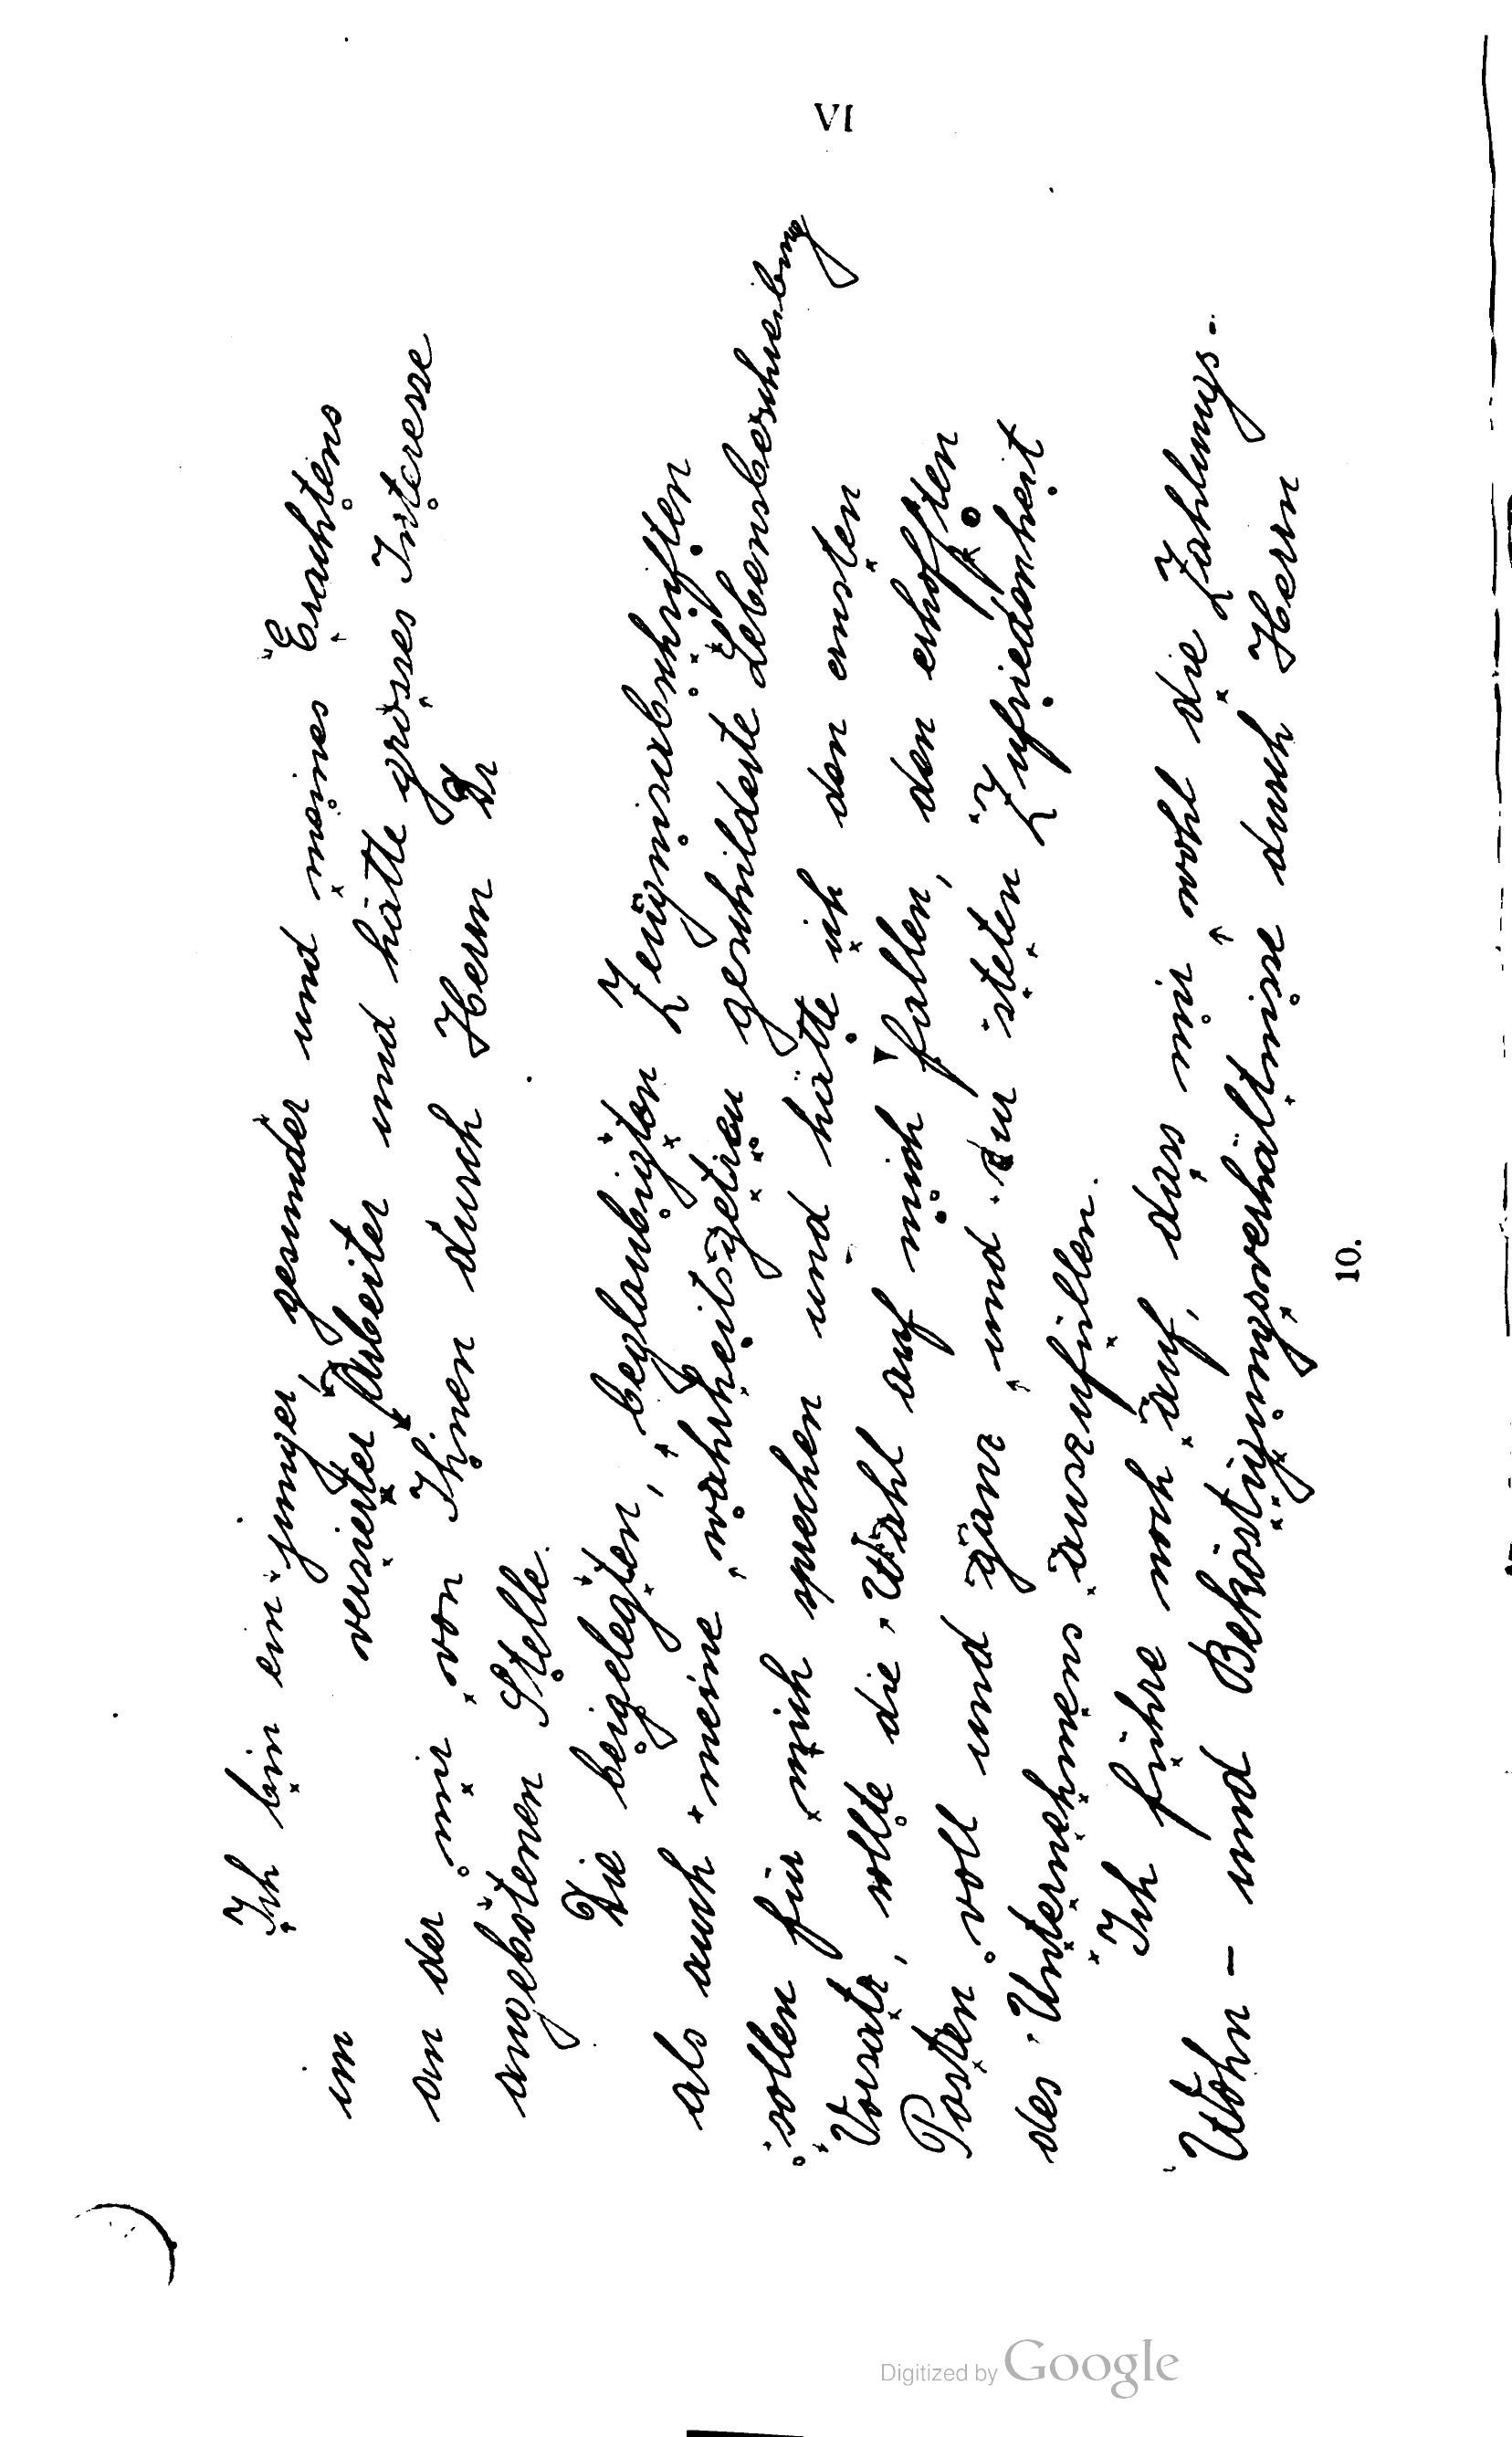 VI
Ich bin ein junger, gesunder und meines Erachtens
im versierter Arbeiter und hätte grosses Interesse
an der mir von Ihnen durch Herrn Dr
angebotenen Stelle.
Die beigelegten, beglaubigten Zeugnisabschriften
als auch meine wahrheitsgetreu geschilderte Lebensbeschreibung
sollen für mich sprechen und hätte ich den ernsten
Vorsatz, sollte die Wahl auf mich fallen, den erhofften
Posten voll und ganz und zu steten Zufriedenheit
des Unternehmens auszufüllen.
Ich führe noch auf, dass mir wohl die Zahlungs-
Wohn- und Beköstigungsverhältnisse durch Herrn
10.
Digitized by Google